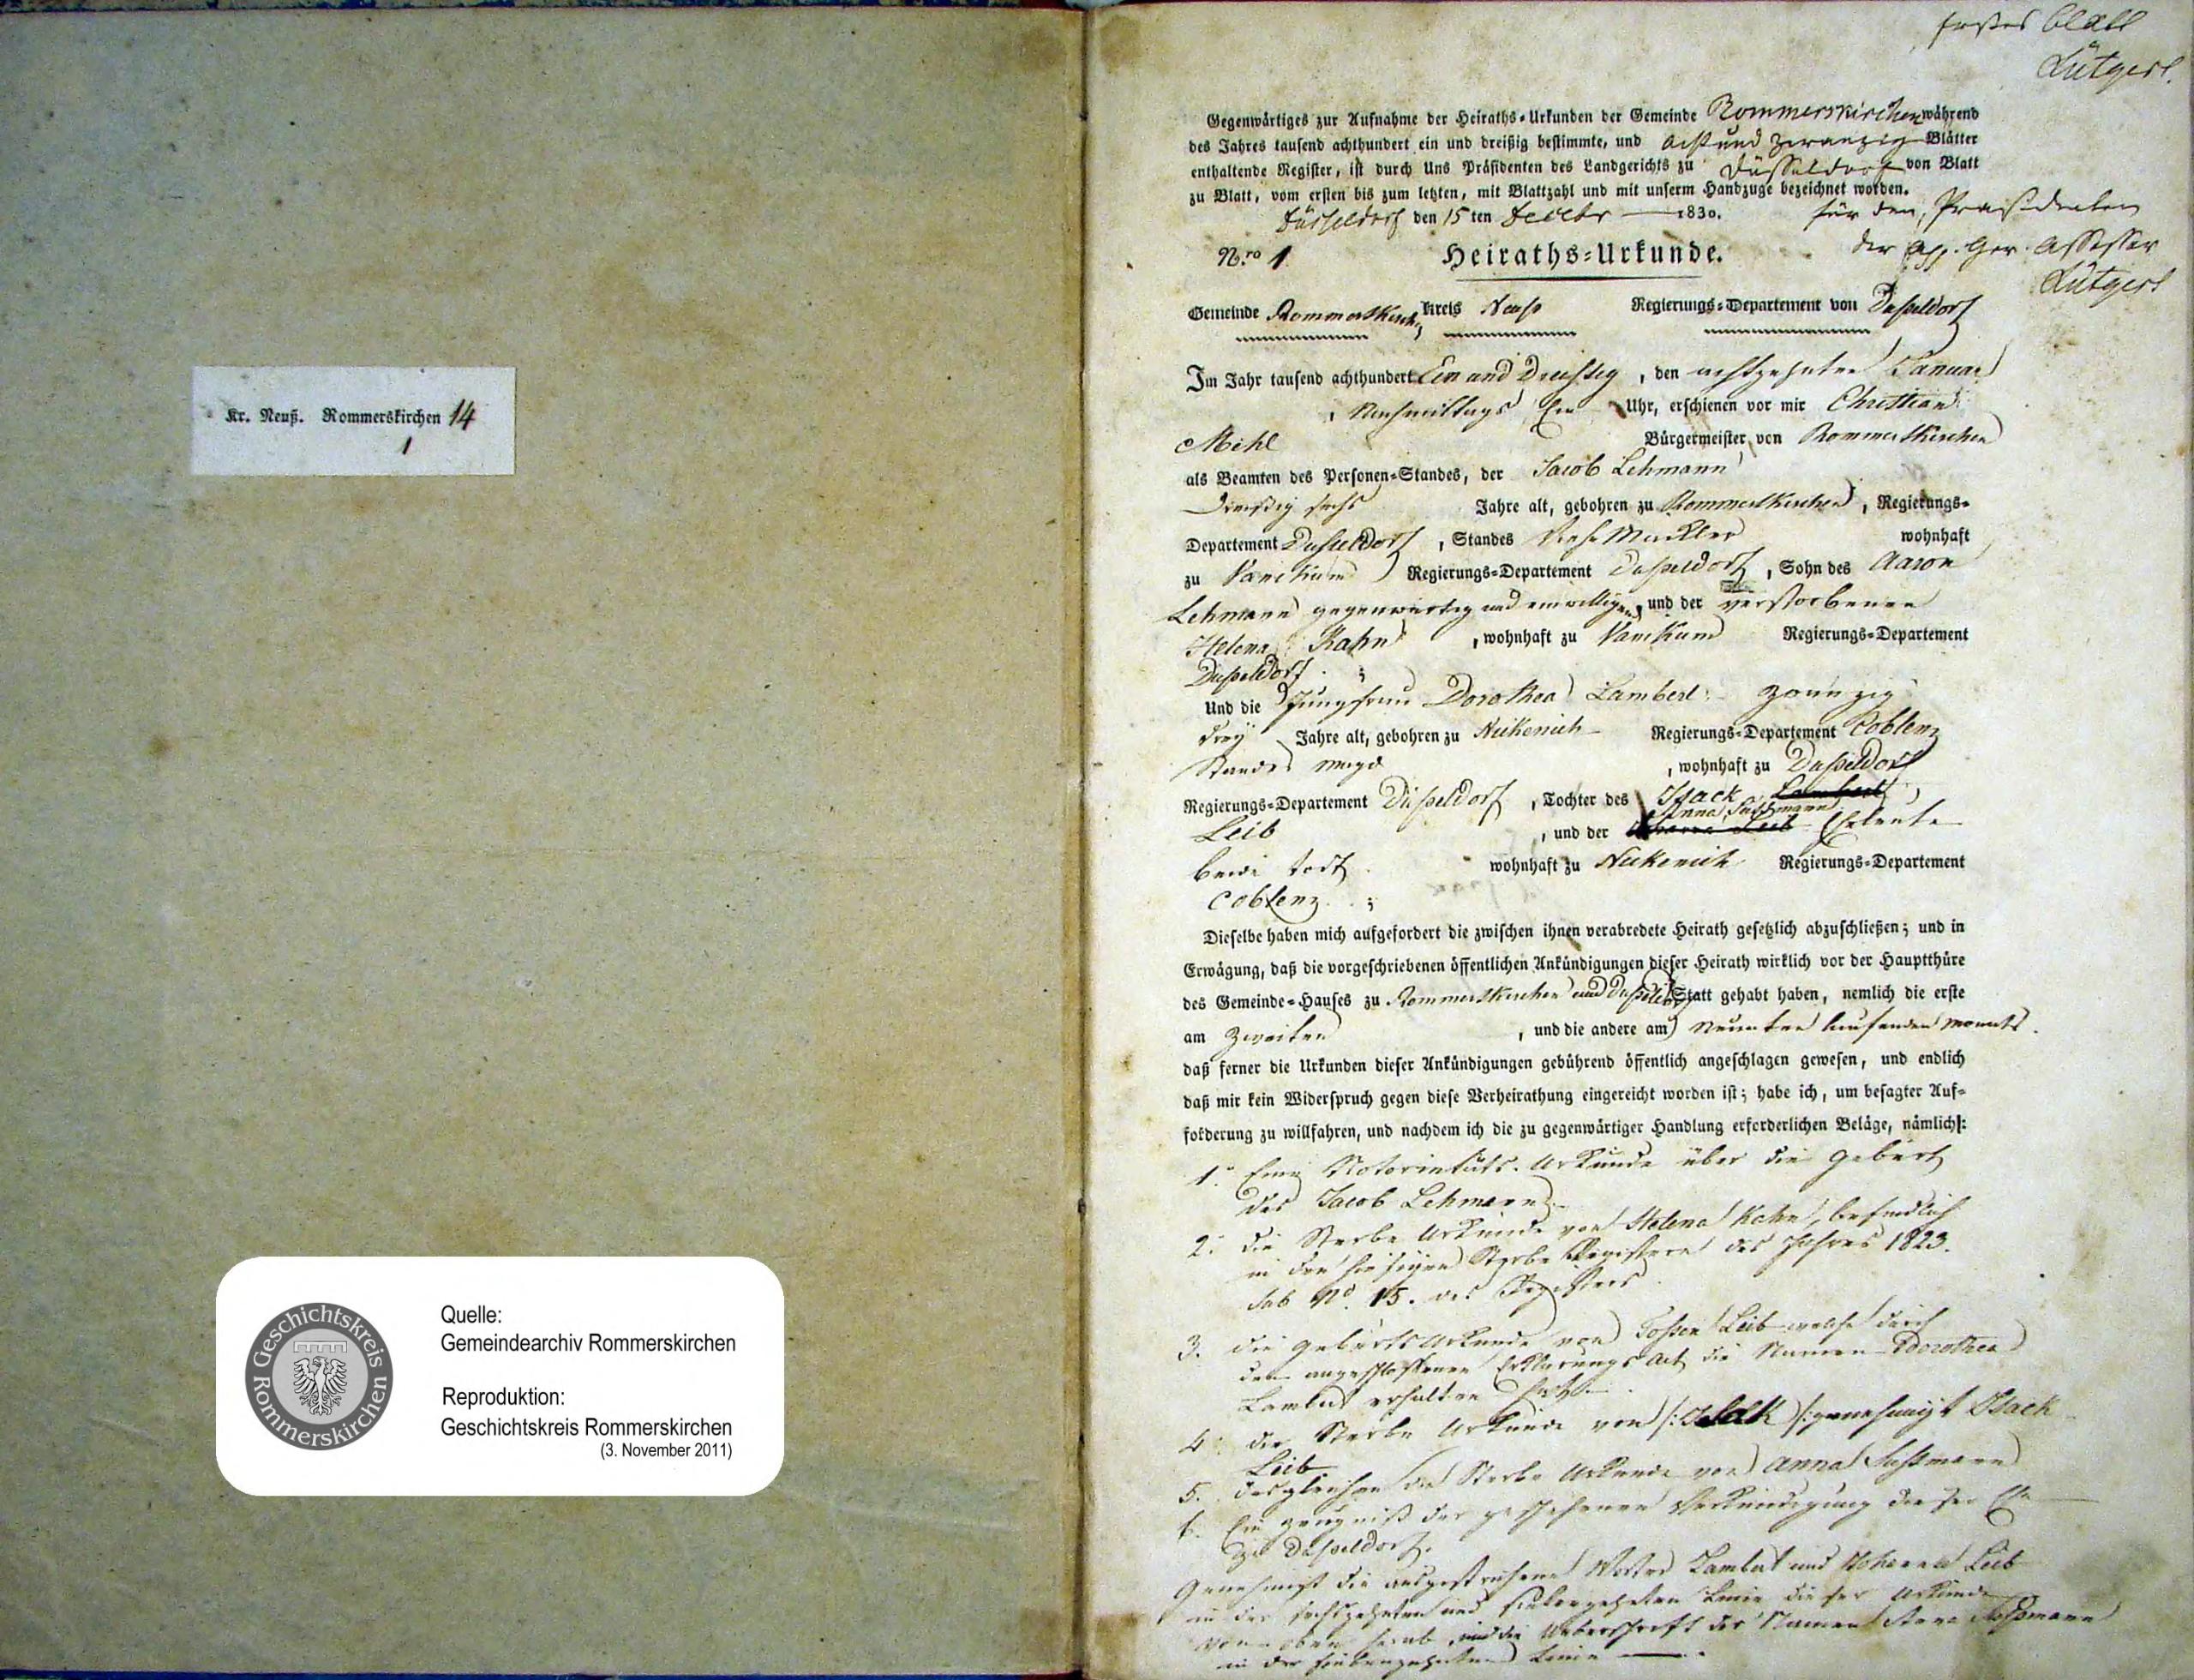 Kr. Neuß. Rommerskirchen 14
1
Geschichtskreis Rommerskirchen
Quelle:
Gemeindearchiv Rommerskirchen
Reproduktion:
Geschichtskreis Rommerskirchen
(3. November 2011)
Erstes Blatt
Lütgert.
Gegenwärtiges zur Aufnahme der Heiraths-Urkunden der Gemeinde Rommerskirchen während
des Jahres tausend achthundert ein und dreißig bestimmte, und acht und zwanzig Blätter
enthaltende Register, ist durch Uns Präsidenten des Landgerichts zu Düsseldorf von Blatt
zu Blatt, vom ersten bis zum letzten, mit Blattzahl und mit unserm Handzuge bezeichnet worden.
Düsseldorf den 15 ten Decebr 1830.
für den Praesidenten
der App. Ger. Assessor
Lütgert
N.ro 1
Heiraths-Urkunde.
Gemeinde Rommerskirchen Kreis Neuss Regierungs-Departement von Dusseldorf
Im Jahr tausend achthundert Ein und Dreissig, den achtzehnten Januar
, Nachmittags Ein Uhr, erschienen vor mir Christian
Mihl Bürgermeister von Rommerskirchen
als Beamten des Personen-Standes, der Jacob Lehmann
Dreißig sechs Jahre alt, gebohren zu Rommerskirchen, Regierungs-
Departement Dusseldorf, Standes Vieh Mackler wohnhaft
zu Vanikum Regierungs-Departement Dusseldorf, Sohn des Aaron
Lehmann gegenwärtig und einwilligend, und der verstorbenen
Helena Kahn, wohnhaft zu Vanikum Regierungs-Departement
Dusseldorf ;
Und die Jungfrau Dorothea Lambert zwanzig
drey Jahre alt, gebohren zu Nickenich Regierungs-Departement Coblenz
Standes Magd, wohnhaft zu Dusseldorf
Regierungs-Departement Düsseldorf, Tochter des Isack Lambert
Anna Sussmann
Leib, und der Johanna Leib Eheleute
beide todt wohnhaft zu Nickenich Regierungs-Departement
Coblenz ;
Dieselbe haben mich aufgefordert die zwischen ihnen verabredete Heirath gesetzlich abzuschließen; und in
Erwägung, daß die vorgeschriebenen öffentlichen Ankündigungen dieser Heirath wirklich vor der Hauptthüre
des Gemeinde-Hauses zu Rommerskirchen und Dusseldorf Statt gehabt haben, nemlich die erste
am Zweiten, und die andere am Neunten laufenden Monats.
daß ferner die Urkunden dieser Ankündigungen gebührend öffentlich angeschlagen gewesen, und endlich
daß mir kein Widerspruch gegen diese Verheirathung eingereicht worden ist; habe ich, um besagter Auf-
forderung zu willfahren, und nachdem ich die zu gegenwärtiger Handlung erforderlichen Beläge, nämlich:
1. Eine Notorietäts-Urkunde über die Geburt
des Jacob Lehmann.
2. die Sterbe Urkunde von Helena Kahn, befindlich
in den hiesigen Sterbe Registern des Jahres 1823.
sub No. 15. des Registers
3. die Geburts Urkunde von Leib welche durch
den angeschlossenen Erklärungs Act die Namen Dorothea
Lambert erhalten hat.
4. die Sterbe Urkunde von genehmigt Isack
Leib
5. desgleichen die Sterbe Urkunde von Anna Sussmann
6. Ein Zeugniß der geschehenen Verkündigung dieser Ehe
zu Dusseldorf.
Genehmigt die ausgestrichene Wörter Lambert und Johanna Leib
in der sechszehnten und siebenzehnten Linie dieser Urkunde
von oben herab, und die Ueberschrift der Namen Anna Sussmann
in der siebenzehnten Linie